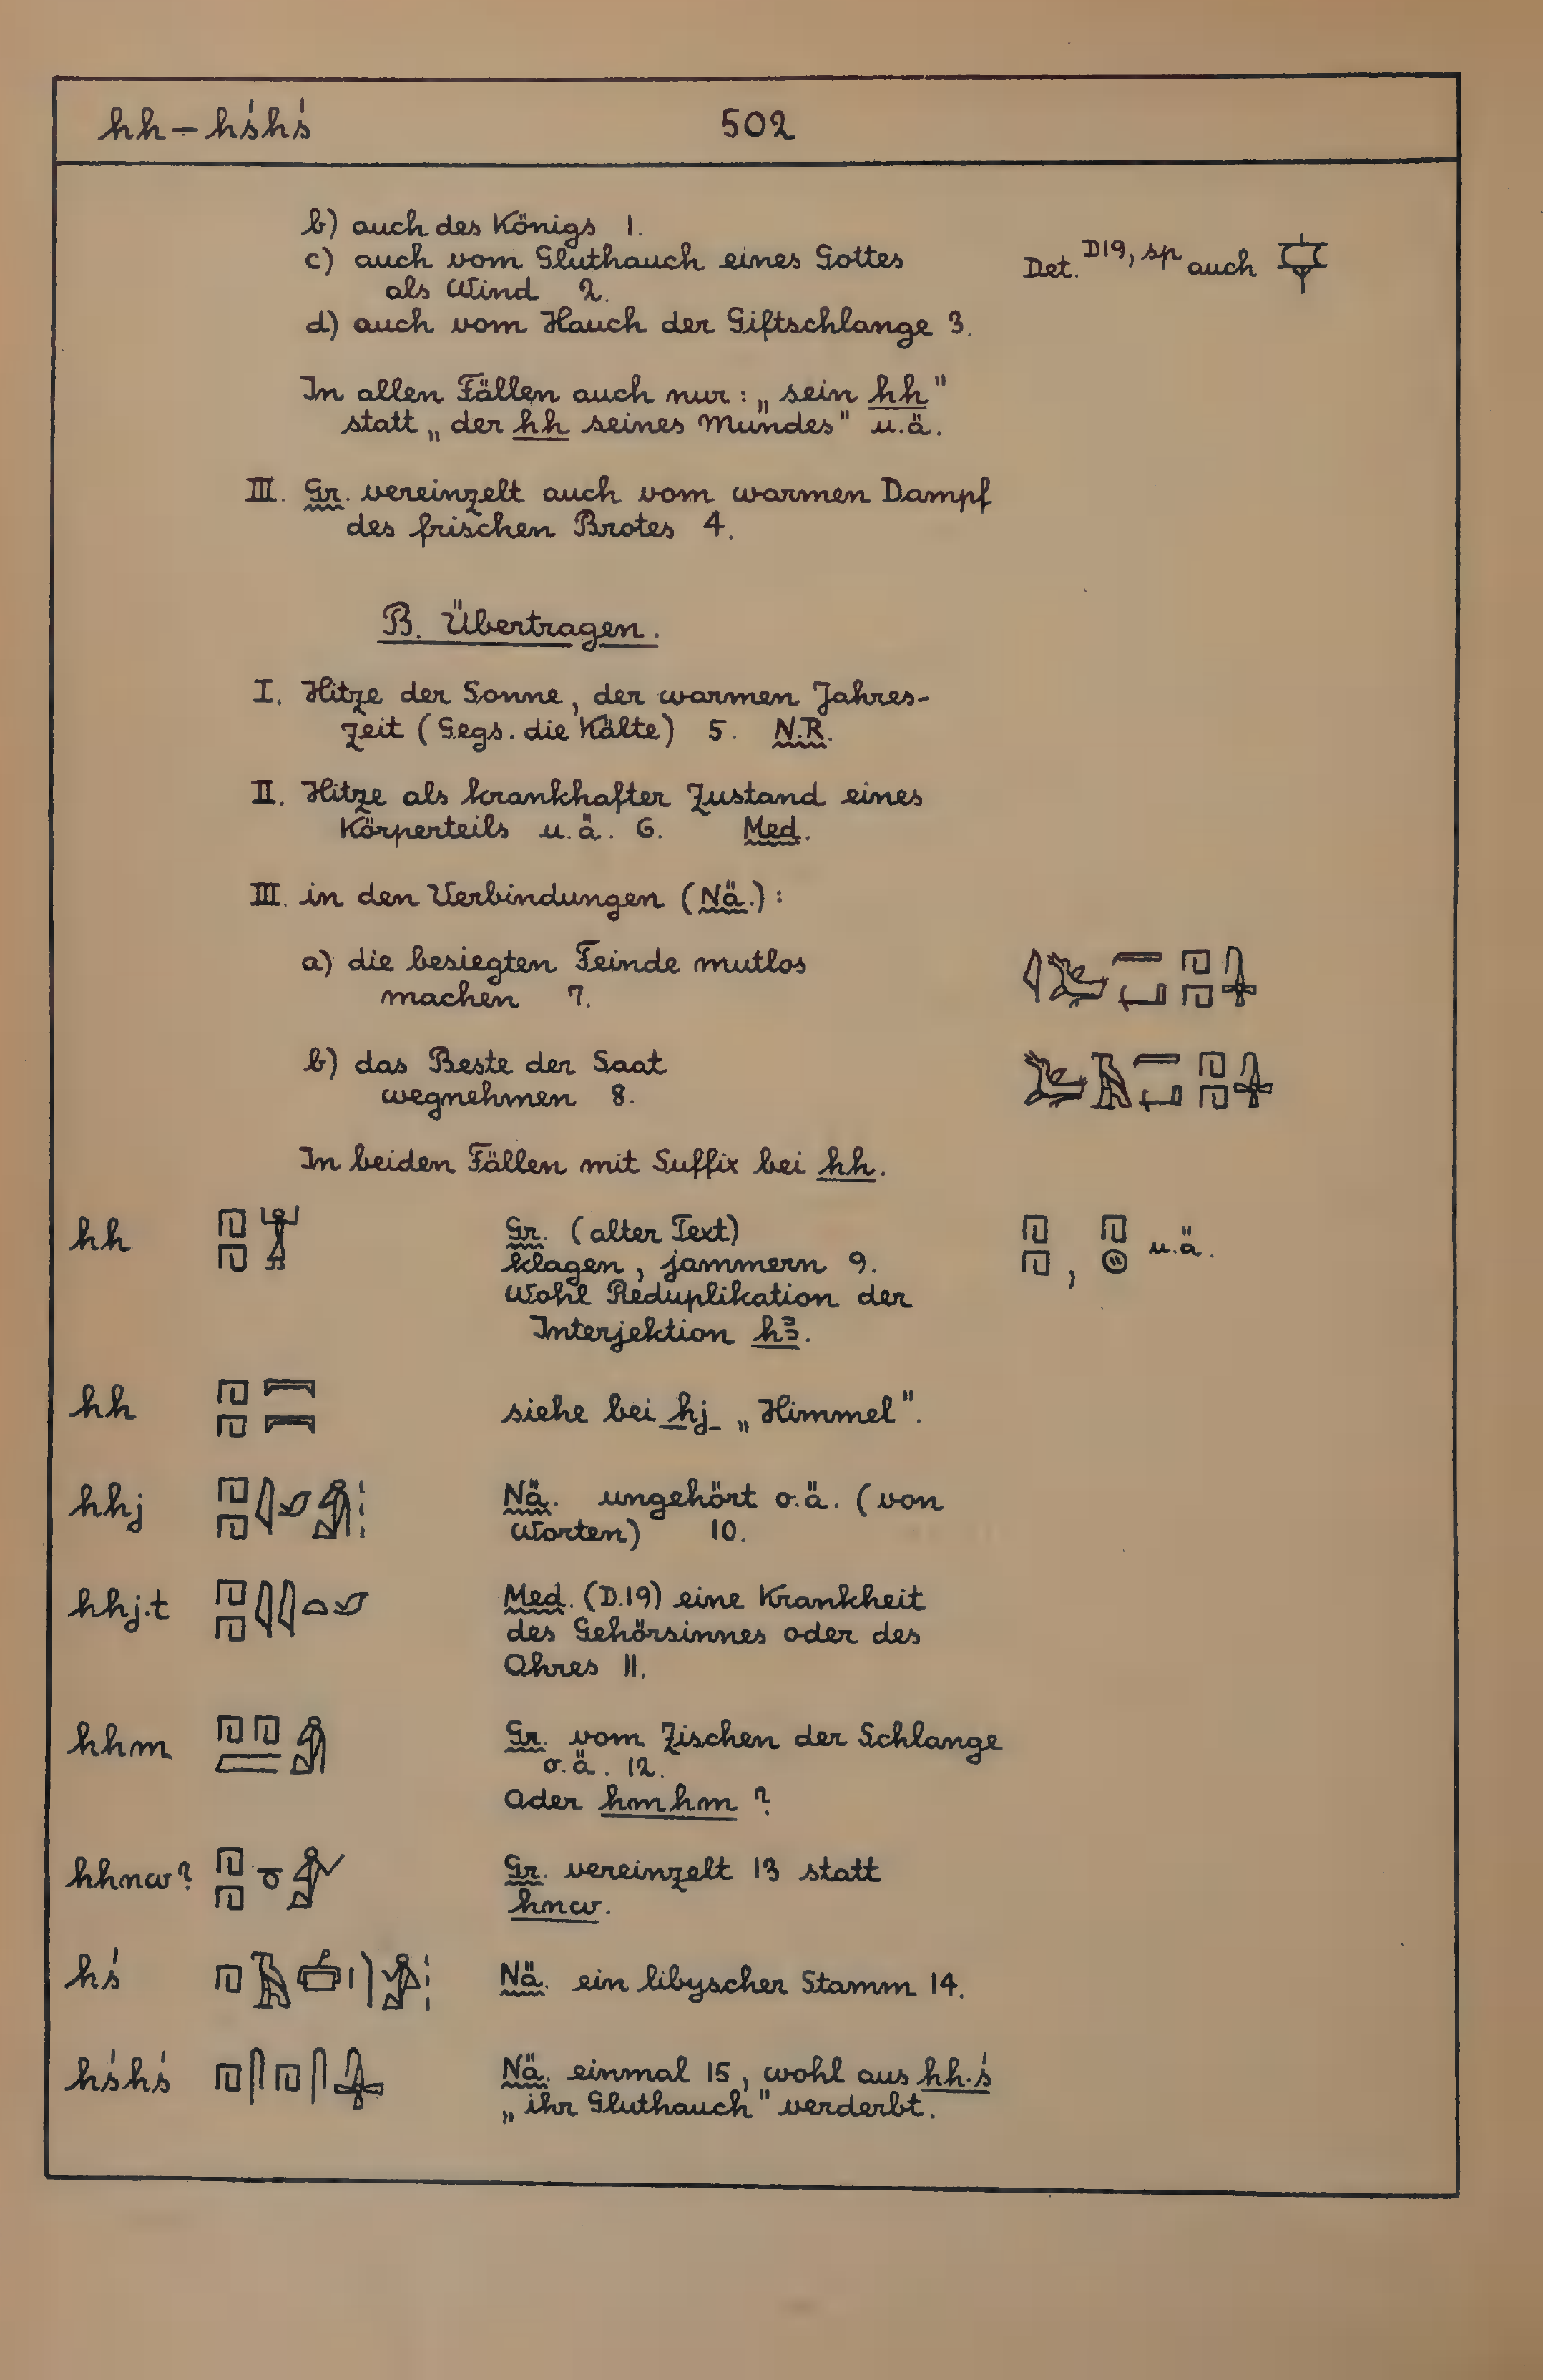 hh – hśhś 502
b) auch des Königs 1.
c) auch vom Gluthauch eines Gottes
als Wind 2.
Det. D19, sp auch
d) auch vom Hauch der Giftschlange 3.
In allen Fällen auch nur: „sein hh"
statt „der hh seines Mundes" u.ä.
III. Gr. vereinzelt auch vom warmen Dampf
des frischen Brotes 4.
B. Übertragen.
I. Hitze der Sonne, der warmen Jahres-
zeit (Gegs. die Kälte) 5. N.R.
II. Hitze als krankhafter Zustand eines
Körperteils u.ä. 6. Med.
III. in den Verbindungen (Nä.):
a) die besiegten Feinde mutlos
machen 7.
b) das Beste der Saat
wegnehmen 8.
In beiden Fällen mit Suffix bei hh.
hh 𓉔𓉔 Gr. (alter Text) 𓉔𓉔, 𓉔𓐍 u.ä.
klagen, jammern 9.
Wohl Reduplikation der
Interjektion hꜣ.
hh 𓉔𓉔𓇯𓇯 siehe bei hj „Himmel".
hhj Nä. ungehört o.ä. (von
Worten) 10.
hhj.t Med. (D.19) eine Krankheit
des Gehörsinnes oder des
Ohres 11.
hhm Gr. vom Zischen der Schlange
o.ä. 12.
Oder hmhm ?
hhnw? Gr. vereinzelt 13 statt
hnw.
hś Nä. ein libyscher Stamm 14.
hśhś Nä. einmal 15, wohl aus hh.ś
„ihr Gluthauch" verderbt.